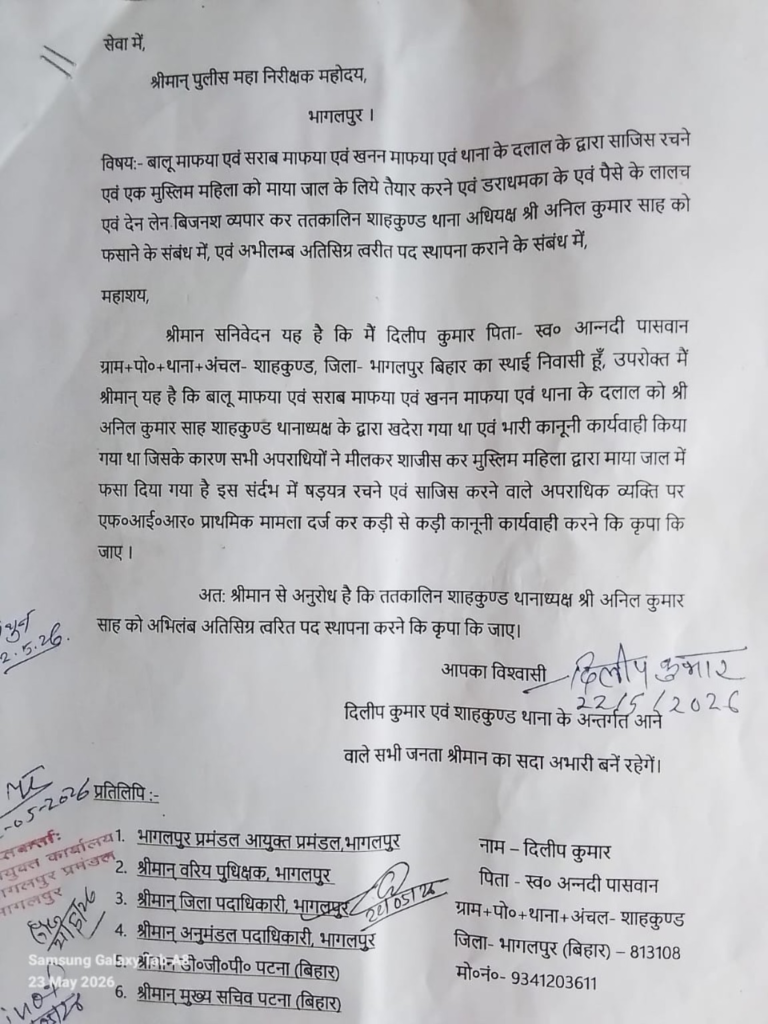 सेवा में,
श्रीमान् पुलीस महा निरीक्षक महोदय,
भागलपुर ।
विषय:- बालू माफया एवं सराब माफया एवं खनन माफया एवं थाना के दलाल के द्वारा साजिस रचने
एवं एक मुस्लिम महिला को माया जाल के लिये तैयार करने एवं डराधमका के एवं पैसे के लालच
एवं देन लेन बिजनश व्यपार कर ततकालिन शाहकुण्ड थाना अधियक्ष श्री अनिल कुमार साह को
फसाने के संबंध में, एवं अभीलम्ब अतिसिग्र त्वरीत पद स्थापना कराने के संबंध में,
महाशय,
श्रीमान सनिवेदन यह है कि मैं दिलीप कुमार पिता- स्व० आन्नदी पासवान
ग्राम+पो०+थाना+अंचल- शाहकुण्ड, जिला- भागलपुर बिहार का स्थाई निवासी हूँ, उपरोक्त में
श्रीमान् यह है कि बालू माफया एवं सराब माफया एवं खनन माफया एवं थाना के दलाल को श्री
अनिल कुमार साह शाहकुण्ड थानाध्यक्ष के द्वारा खदेरा गया था एवं भारी कानूनी कार्यवाही किया
गया था जिसके कारण सभी अपराधियों ने मीलकर शाजीस कर मुस्लिम महिला द्वारा माया जाल में
फसा दिया गया है इस संर्दभ में षड़यत्र रचने एवं साजिस करने वाले अपराधिक व्यक्ति पर
एफ०आई०आर० प्राथमिक मामला दर्ज कर कड़ी से कड़ी कानूनी कार्यवाही करने कि कृपा कि
जाए ।
अत: श्रीमान से अनुरोध है कि ततकालिन शाहकुण्ड थानाध्यक्ष श्री अनिल कुमार
साह को अभिलंब अतिसिग्र त्वरित पद स्थापना करने कि कृपा कि जाए।
आपका विश्वासी दिलीप कुमार
22/5/2026
दिलीप कुमार एवं शाहकुण्ड थाना के अन्तर्गत आने
वाले सभी जनता श्रीमान का सदा अभारी बनें रहेगें।
प्रतिलिपि :-
1. भागलपुर प्रमंडल आयुक्त प्रमंडल,भागलपुर
2. श्रीमान् वरिय पुधिक्षक, भागलपुर
3. श्रीमान् जिला पदाधिकारी, भागलपुर
22/05/26
4. श्रीमान् अनुमंडल पदाधिकारी, भागलपुर
5. श्रीमान् डी०जी०पी० पटना (बिहार)
6. श्रीमान् मुख्य सचिव पटना (बिहार)
नाम – दिलीप कुमार
पिता - स्व० अन्नदी पासवान
ग्राम+पो०+थाना+अंचल- शाहकुण्ड
जिला- भागलपुर (बिहार) – 813108
मो०नं०- 9341203611
2.5.26.
-05-2026
कार्यालय
प्रमंडल
भागलपुर
Samsung Galaxy Tab A8
23 May 2026